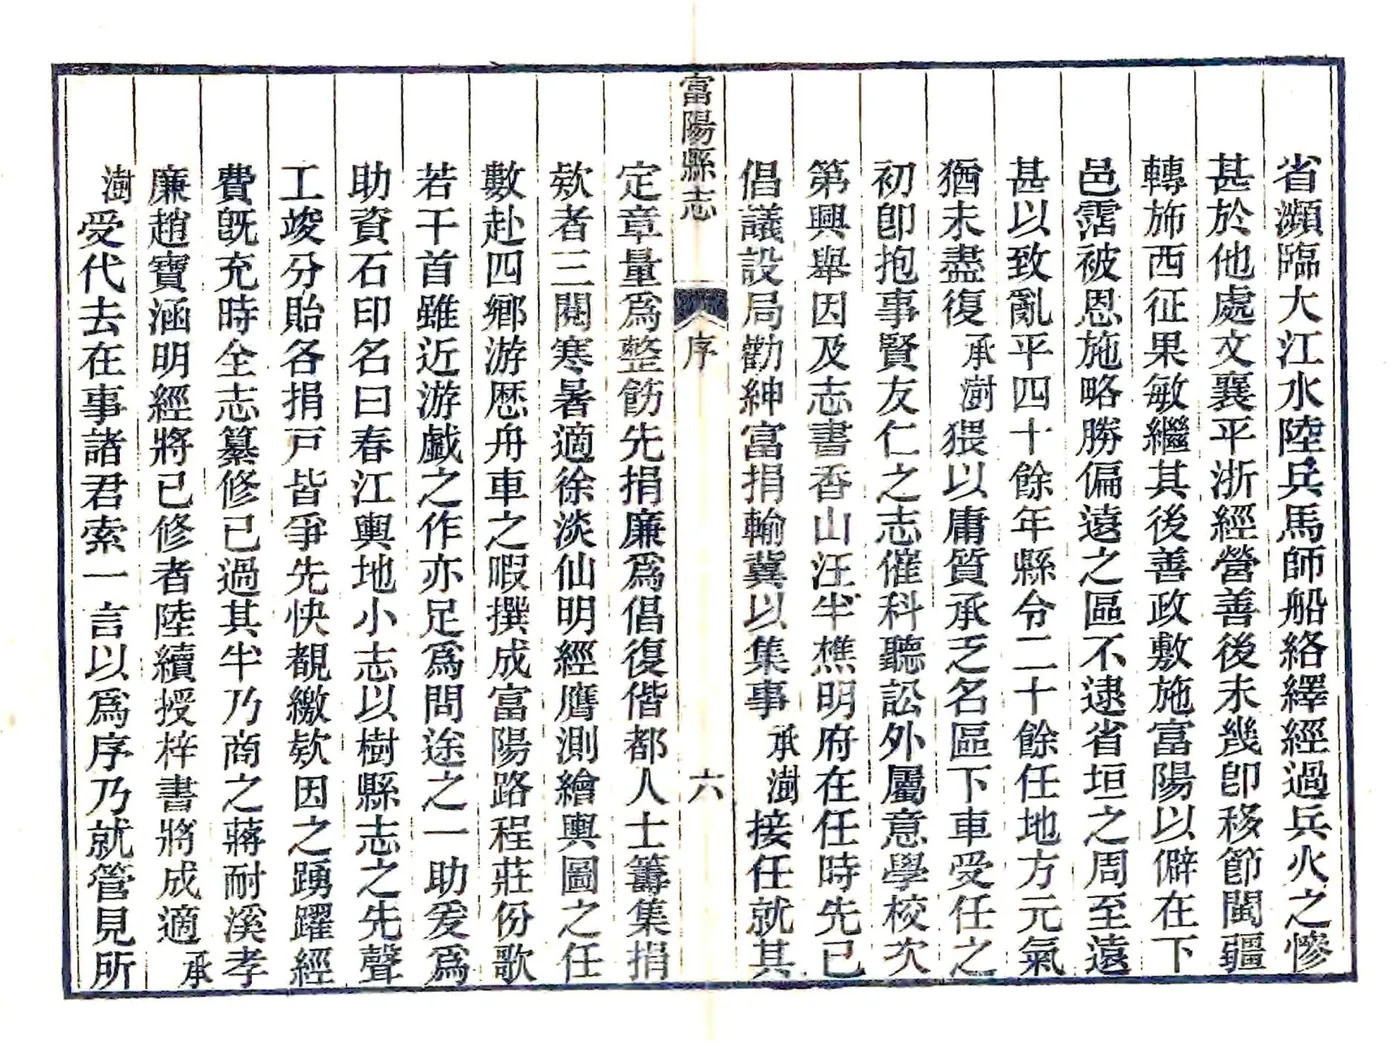 省瀕臨大江水陸兵馬師船絡繹經過兵火之慘
甚於他處文襄平浙經營善後未幾卽移節閩疆
轉斾西征果敏繼其後善政敷施富陽以僻在下
邑霑被恩施略勝偏遠之區不逮省垣之周至遠
甚以致亂平四十餘年縣令二十餘任地方元氣
猶未盡復承澍猥以庸質承乏名區下車受任之
初卽抱事賢友仁之志催科聽訟外屬意學校次
第興舉因及志書香山汪半樵明府在任時先已
倡議設局勸紳富捐輸冀以集事承澍接任就其
富陽縣志
序
六
定章量爲整飭先捐廉爲倡復偕都人士籌集捐
欵者三閱寒暑適徐淡仙明經膺測繪輿圖之任
數赴四鄉游歷舟車之暇撰成富陽路程莊份歌
若干首雖近游戲之作亦足爲問途之一助爰爲
助資石印名曰春江輿地小志以樹縣志之先聲
工竣分貽各捐戸皆爭先快覩繳欵因之踴躍經
費旣充時全志纂修已過其半乃商之蔣耐溪孝
廉趙寶涵明經將已修者陸續授梓書將成適承
澍受代去在事諸君索一言以爲序乃就管見所